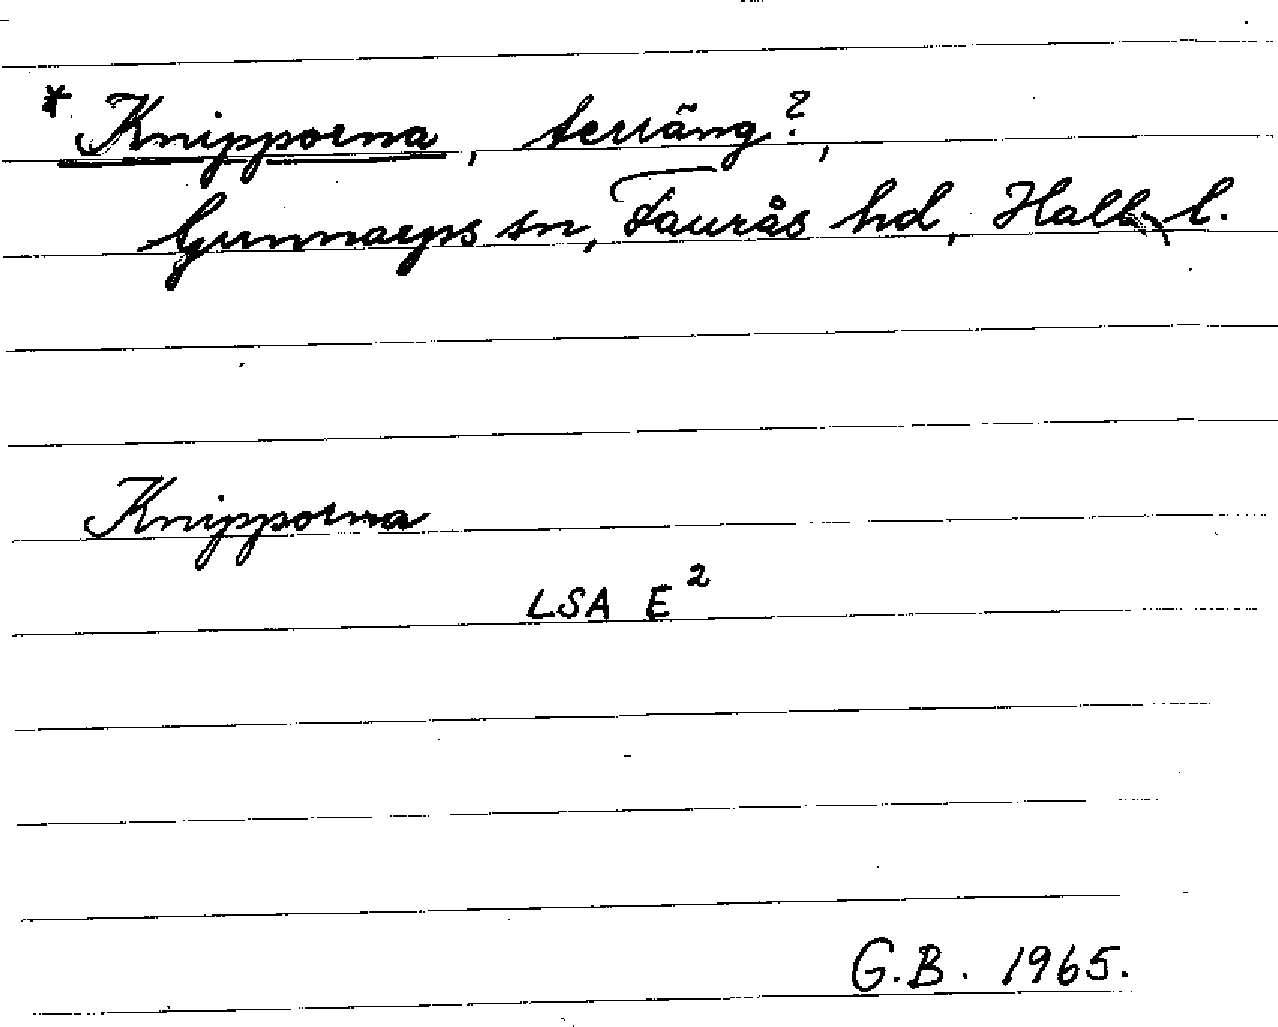 * Knipporna, terräng?,
Gunnarps sn, Faurås hd, Hall. l.
Knipporna
LSA E²
G.B. 1965.